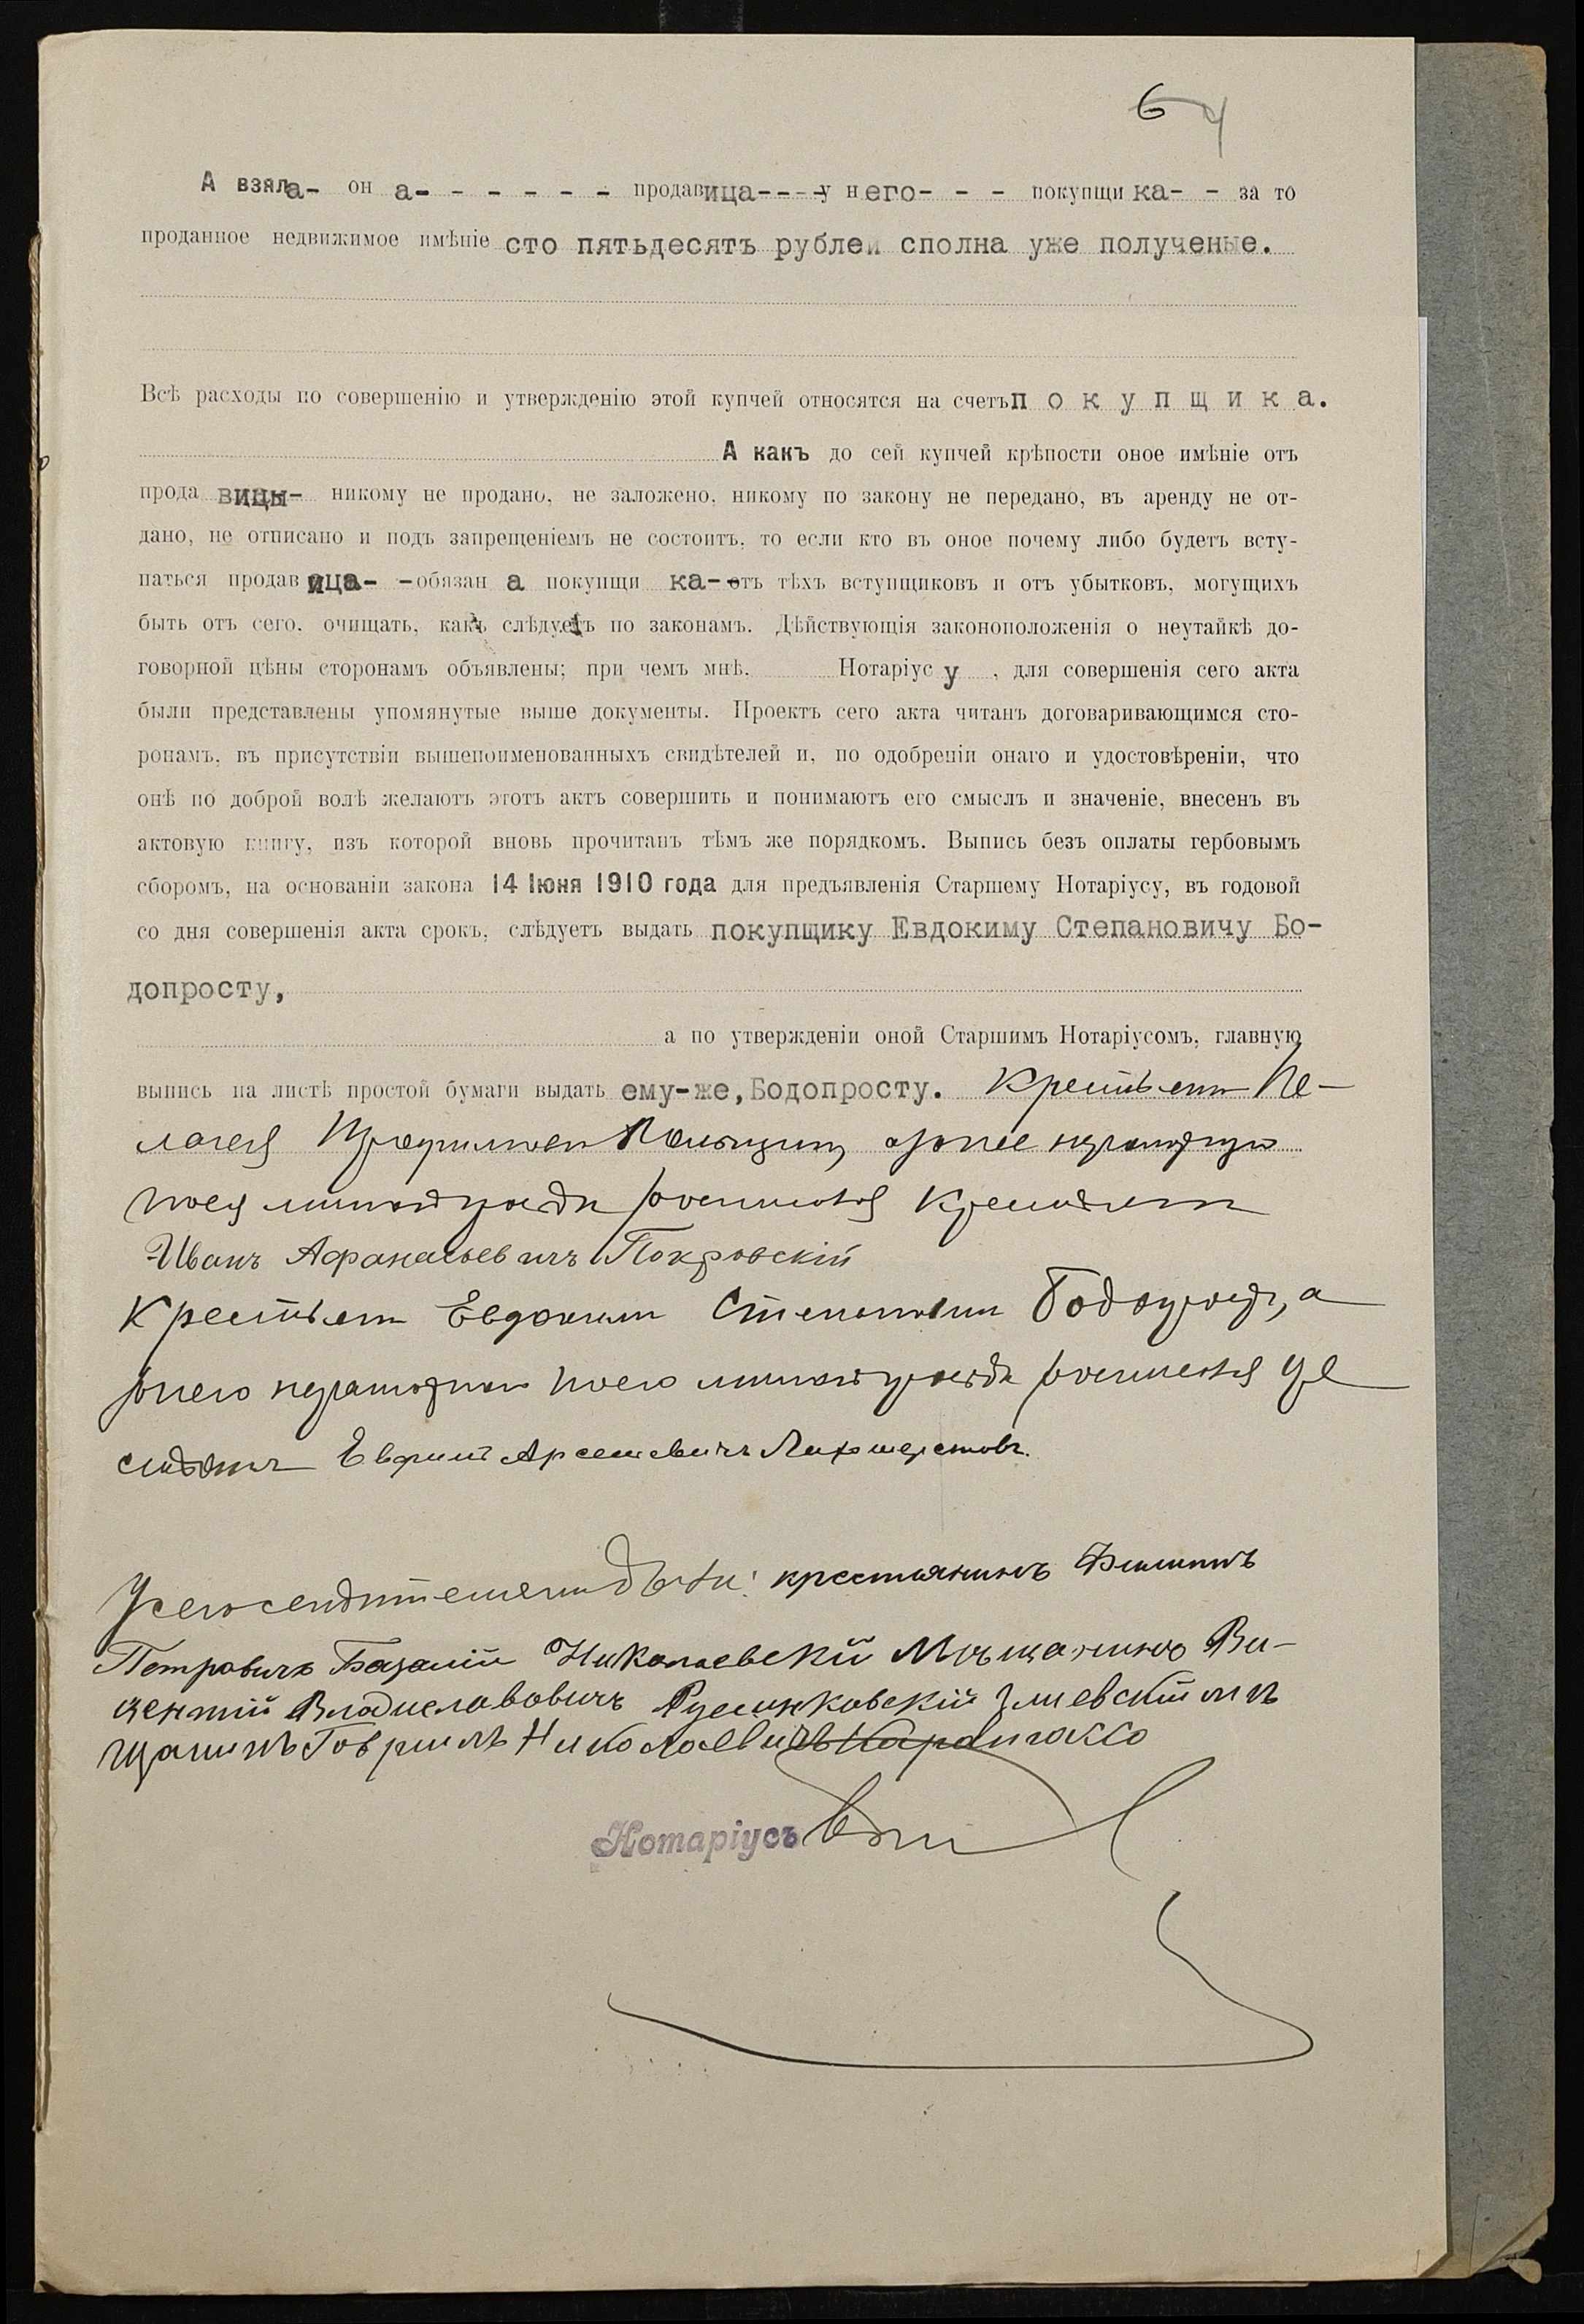 6
А взяла- он а- - - - - - продавица- - - -у него- - - покупщика- - за то
проданное недвижимое имѣніе сто пятьдесятъ рублей сполна уже полученые.
Всѣ расходы по совершенію и утвержденію этой купчей относятся на счетъ п о к у п щ и к а.
А какъ до сей купчей крѣпости оное имѣніе отъ
продавицы- никому не продано, не заложено, никому по закону не передано, въ аренду не от-
дано, не отписано и подъ запрещеніемъ не состоитъ, то если кто въ оное почему либо будетъ всту-
паться продавица- -обязана покупщика-отъ тѣхъ вступщиковъ и отъ убытковъ, могущихъ
быть отъ сего, очищать, какъ слѣдуетъ по законамъ. Дѣйствующія законоположенія о неутайкѣ до-
говорной цѣны сторонамъ объявлены; при чемъ мнѣ, Нотаріусу, для совершенія сего акта
были представлены упомянутые выше документы. Проектъ сего акта читанъ договаривающимся сто-
ронамъ, въ присутствіи вышепоименованныхъ свидѣтелей и, по одобреніи онаго и удостовѣреніи, что
онѣ по доброй волѣ желаютъ этотъ актъ совершить и понимаютъ его смыслъ и значеніе, внесенъ въ
актовую книгу, изъ которой вновь прочитанъ тѣмъ же порядкомъ. Выпись безъ оплаты гербовымъ
сборомъ, на основаніи закона 14 Іюня 1910 года для предъявленія Старшему Нотаріусу, въ годовой
со дня совершенія акта срокъ, слѣдуетъ выдать покупщику Евдокиму Степановичу Бо-
допросту,
а по утвержденіи оной Старшимъ Нотаріусомъ, главную
выпись на листѣ простой бумаги выдать ему-же, Бодопросту. Крестьянка Пе-
лагея а за нее неграмотную
по ея личной просьбѣ росписался крестьянинъ
Иванъ Афанасьевичъ Покровскій
Крестьянинъ Евдокимъ Степановичъ Бодопростъ, а
за него неграмотнаго по его личной просьбѣ росписался
Евфимій Арсеніевичъ Лихошерстовъ.
У сего свидѣтелями были: крестьянинъ Филиппъ
Петровичъ Базалій Николаевскій Мѣщанинъ Ви-
центій Владиславовичъ Змиевскій мѣ
щанинъ Гавріилъ Николаевичъ
Нотаріусъ